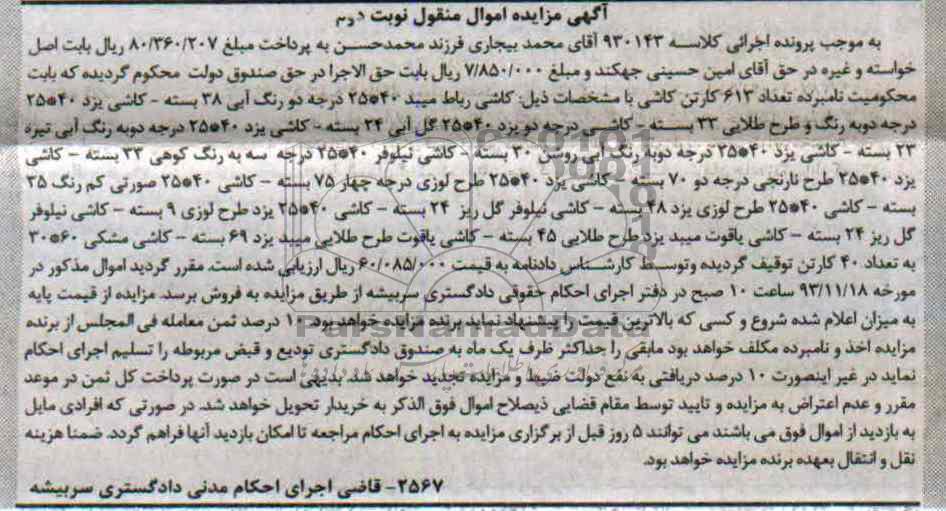 آگهی مزایده اموال منقول نوبت دوم
به موجب پرونده اجرائی کلاسه ۹۳۰۱۴۳ آقای محمد بیجاری فرزند محمدحسن به پرداخت مبلغ ۸۰/۳۶۰/۲۰۷ ریال بابت اصل
خواسته و غیره در حق آقای امین حسینی جهکند و مبلغ ۷/۸۵۰/۰۰۰ ریال بابت حق الاجرا در حق صندوق دولت محکوم گردیده که بابت
محکومیت نامبرده تعداد ۶۱۳ کارتن کاشی با مشخصات ذیل: کاشی رباط میبد ۴۰*۲۵ درجه دو رنگ آبی ۳۸ بسته - کاشی یزد ۴۰*۲۵
درجه دوبه رنگ و طرح طلایی ۳۳ بسته - کاشی درجه دو یزد ۴۰*۲۵ گل آبی ۲۴ بسته - کاشی یزد ۴۰*۲۵ درجه دوبه رنگ آبی تیره
۲۳ بسته - کاشی یزد ۴۰*۲۵ درجه دوبه رنگ آبی روشن ۳۰ بسته - کاشی نیلوفر ۴۰*۲۵ درجه سه به رنگ کوهی ۳۳ بسته - کاشی
یزد ۴۰*۲۵ طرح نارنجی درجه دو ۷۰ بسته - کاشی یزد ۴۰*۲۵ طرح لوزی درجه چهار ۷۵ بسته - کاشی ۴۰*۲۵ صورتی کم رنگ ۳۵
بسته - کاشی ۴۰*۲۵ طرح لوزی یزد ۴۸ بسته - کاشی نیلوفر گل ریز ۲۴ بسته - کاشی ۴۰*۲۵ یزد طرح لوزی ۹ بسته - کاشی نیلوفر
گل ریز ۲۴ بسته - کاشی یاقوت میبد یزد طرح طلایی ۴۵ بسته - کاشی یاقوت طرح طلایی میبد یزد ۶۹ بسته - کاشی مشکی ۶۰*۳۰
به تعداد ۴۰ کارتن توقیف گردیده وتوسط کارشناس دادنامه به قیمت ۶۰/۰۸۵/۰۰۰ ریال ارزیابی شده است. مقرر گردید اموال مذکور در
مورخه ۹۳/۱۱/۱۸ ساعت ۱۰ صبح در دفتر اجرای احکام حقوقی دادگستری سربیشه از طریق مزایده به فروش برسد. مزایده از قیمت پایه
به میزان اعلام شده شروع و کسی که بالاترین قیمت را پیشنهاد نماید برنده مزایده خواهد بود. ۱۰ درصد ثمن معامله فی المجلس از برنده
مزایده اخذ و نامبرده مکلف خواهد بود مابقی را حداکثر ظرف یک ماه به صندوق دادگستری تودیع و قبض مربوطه را تسلیم اجرای احکام
نماید در غیر اینصورت ۱۰ درصد دریافتی به نفع دولت ضبط و مزایده تجدید خواهد شد. بدیهی است در صورت پرداخت کل ثمن در موعد
مقرر و عدم اعتراض به مزایده و تایید توسط مقام قضایی ذیصلاح اموال فوق الذکر به خریدار تحویل خواهد شد. در صورتی که افرادی مایل
به بازدید از اموال فوق می باشند می توانند ۵ روز قبل از برگزاری مزایده به اجرای احکام مراجعه تا امکان بازدید آنها فراهم گردد. ضمنا هزینه
نقل و انتقال بعهده برنده مزایده خواهد بود.
۲۵۶۷- قاضی اجرای احکام مدنی دادگستری سربیشه
ParsNamadData